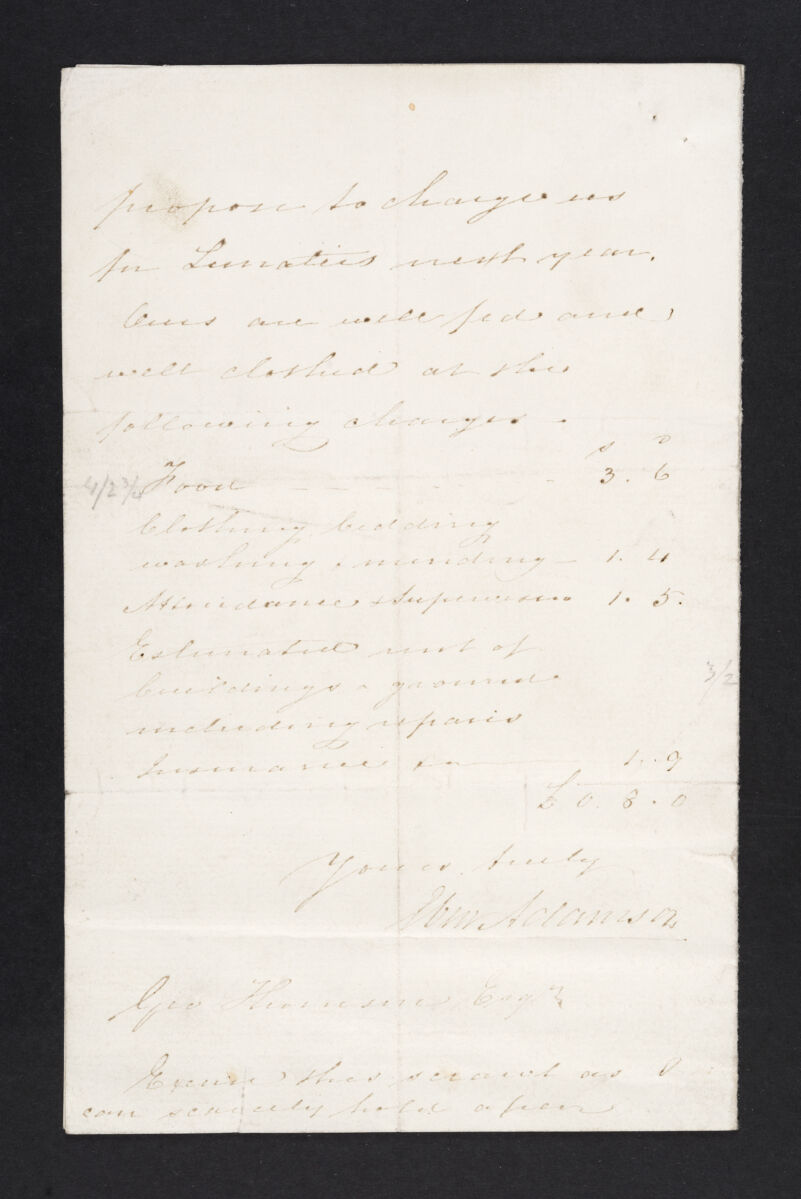 propose to charge us
for Lunatics next year.
Ours are well fed and
well clothed at the
following charges.
s D
4/2¾ Food - - - 3. 6
Clothing bedding
washing & mending - 1. 4
Attendance & Supervision 1. 5.
Estimated rent of
buildings & ground
3/2
including repairs
Insurance &c 1. 9
£ 0. 8. 0
Yours truly
Adamson
Geo Thomson Esqr
Excuse this scrawl as I
can scarcely hold a pen